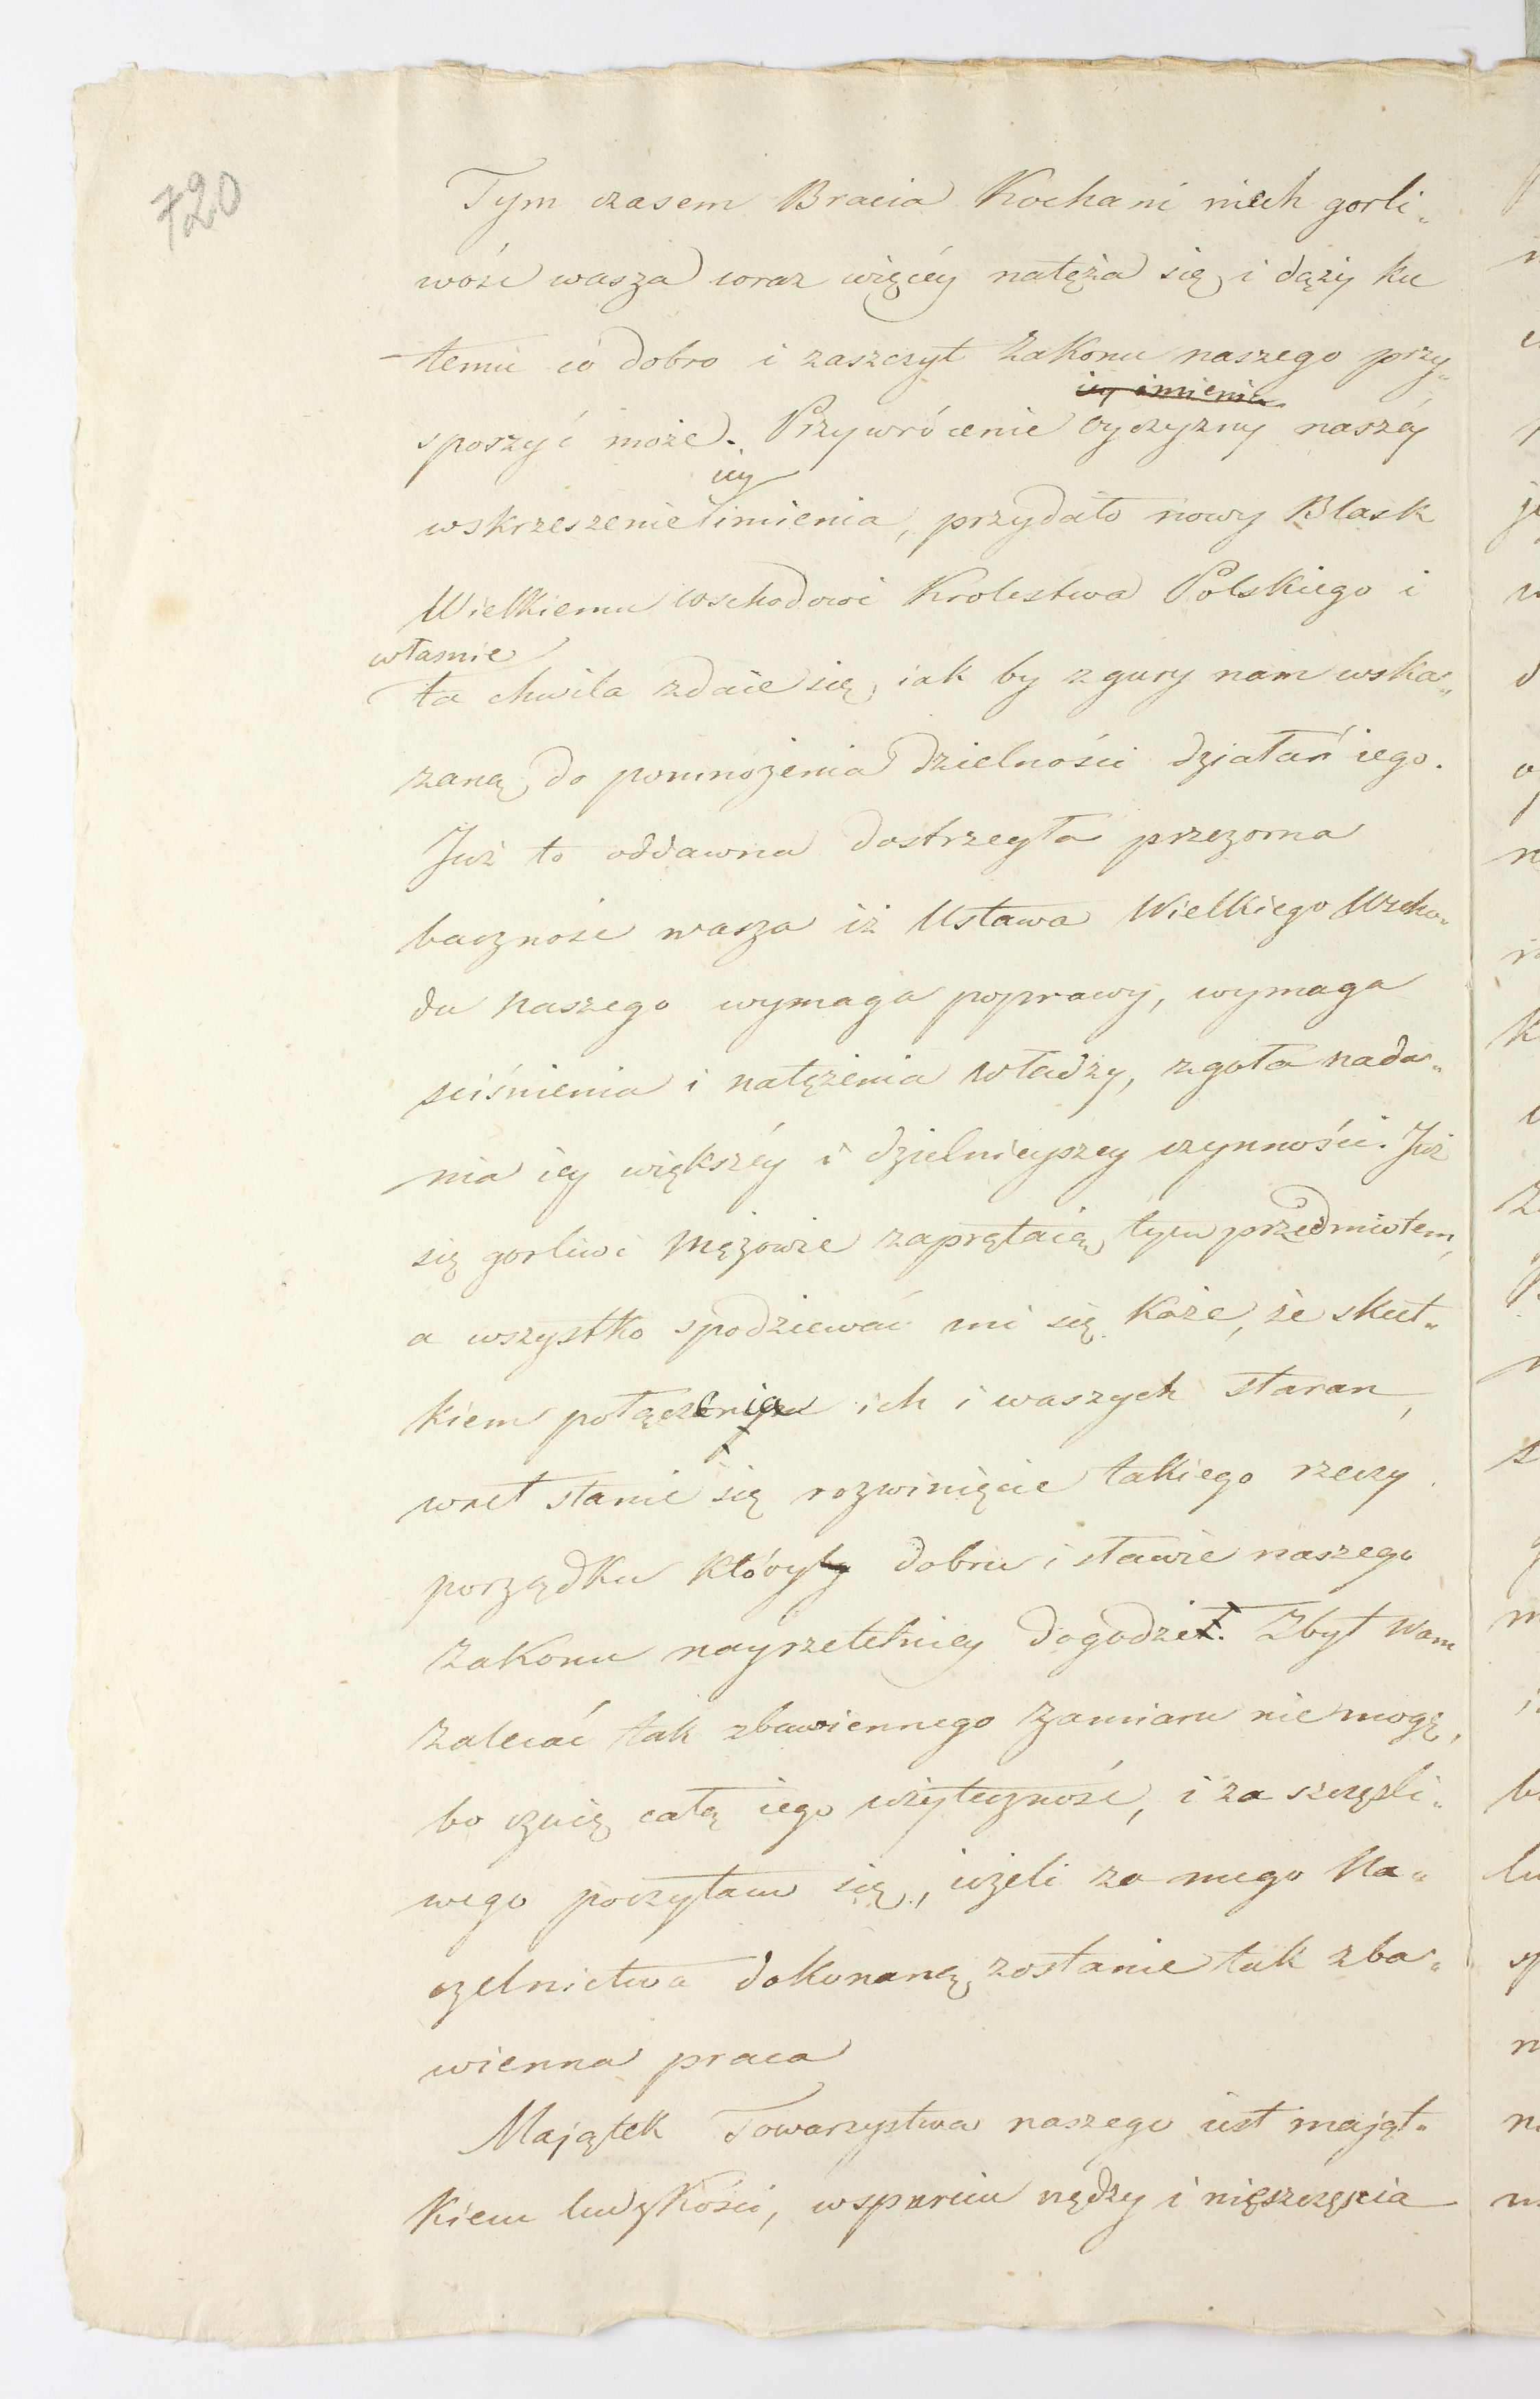 720
Tym czasem Bracia Kochani niech gorli„
wość wasza coraz więcéy natęża się i dąży ku
temu co dobro i zaszczyt Zakonu naszego przy„
iey imienia
sposzyć może. Przywrócenie oyczyzny naszéy
iey
wskrzeszenie imienia, przydało nowy Blask
Wielkiemu Wschodowi Krolestwa Polskiego i
własnie
ta chwila zdaie się, iak by z gury nam wska„
zaną do pomnożenia dzielności działań iego.
Już to oddawna dostrzegła przezorna
baczność wasza iż Ustawa Wielkiego Wscho„
du naszego wymaga poprawy, wymaga
sciśnienia i natężenia władzy, zgoła nada„
nia iey większéy i dzielnieyszey czynności. Już
się gorliwi Mężowie zaprątaią tym przedmiotem,
a wszystko spodziewać mi się każe, że skut„
kiem połączenia ich i waszych staran,
wnet stanie się rozwinięcie takiego rzeczy
porządku któryby dobru i sławie naszego
Zakonu nayrzetelniey dogodził. Zbyt Wam
zalecać tak zbawiennego zamiaru nie mogę,
bo czuię całą iego użyteczność, i za szczęśli„
wego poczytam się, ieżeli za mego Na„
czelnictwa dokonaną zostanie tak zba„
wienna praca
Majątek Towarzystwa naszego iest mająt„
kiem ludzkości, wsparciu nędzy i nieszczęścia